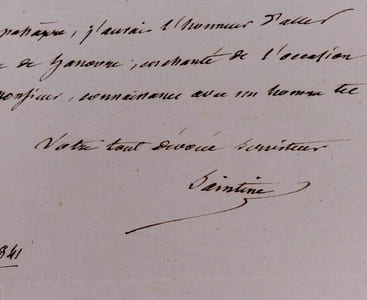 j'aurai l'honneur d'aller
de Hanovre, enchanté de l'occasion
Monsieur, connaissance avec un homme tel
Votre tout dévoué serviteur
Saintine
841